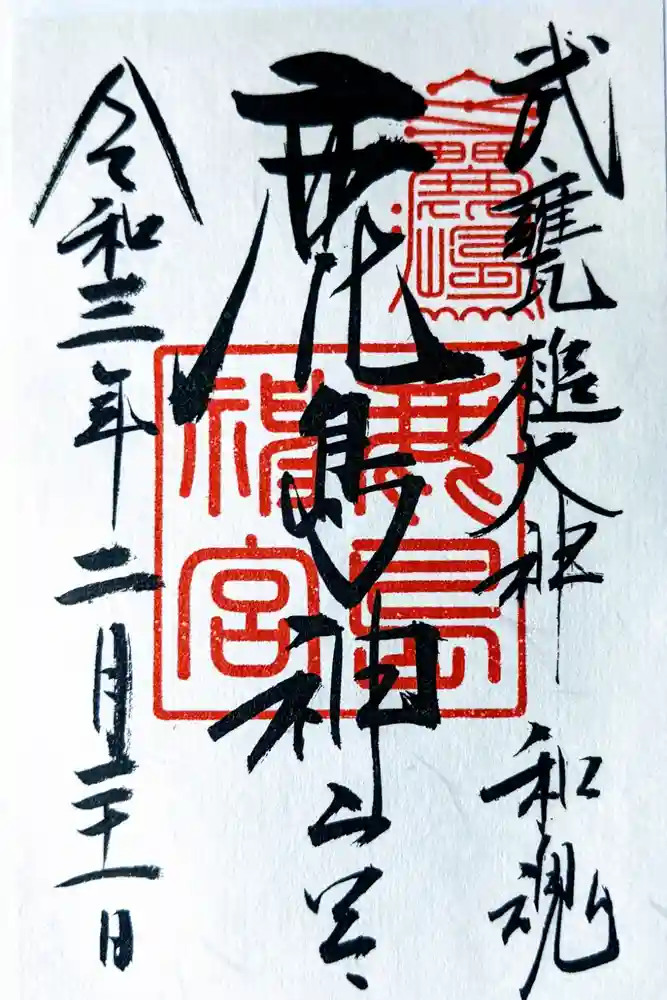 武甕槌大神 和魂
鹿島神宮
鹿島
神宮
令和三年二月二十一日